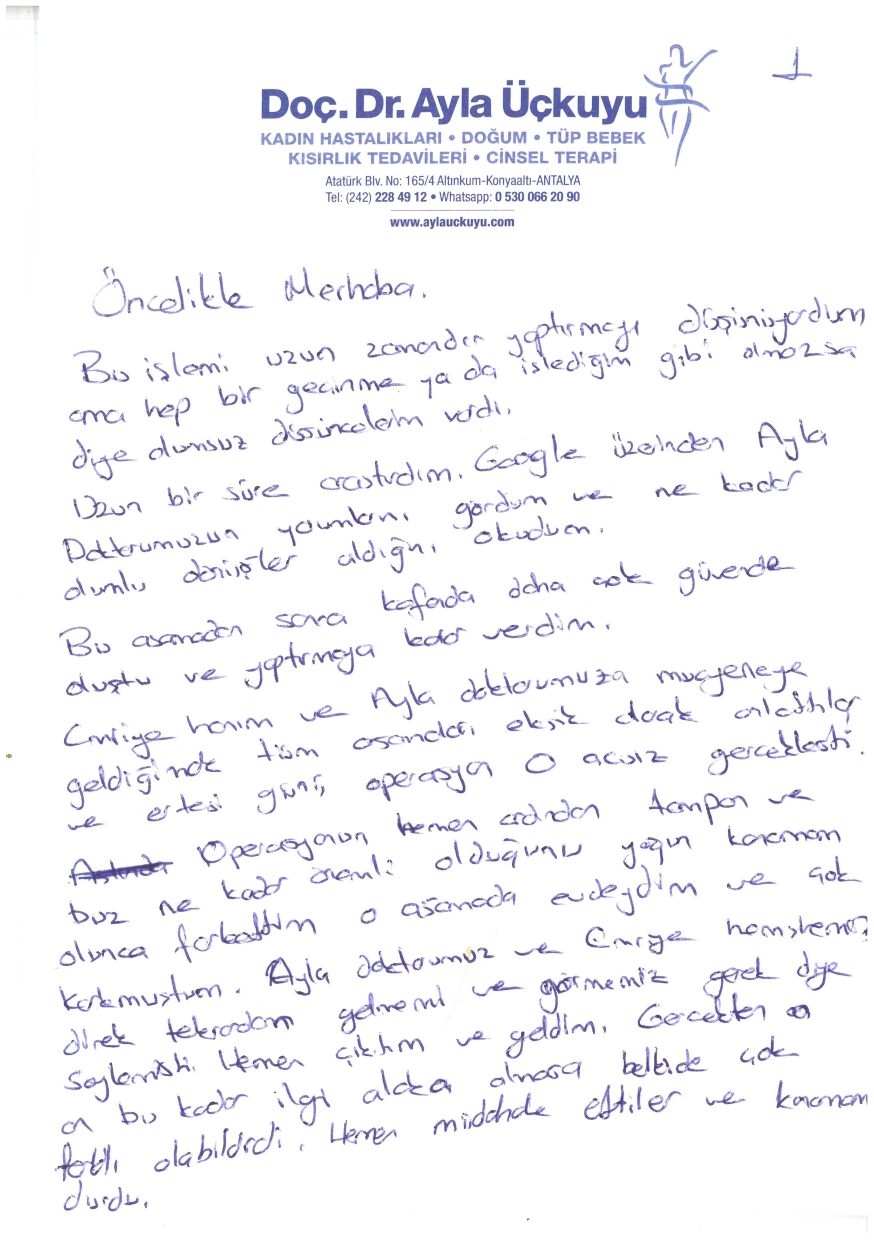 1
Doç. Dr. Ayla Üçkuyu
KADIN HASTALIKLARI • DOĞUM • TÜP BEBEK
KISIRLIK TEDAVİLERİ • CİNSEL TERAPİ
Atatürk Blv. No: 165/4 Altınkum-Konyaaltı-ANTALYA
Tel: (242) 228 49 12 • Whatsapp: 0 530 066 20 90
www.aylauckuyu.com
Öncelikle Merhaba.
Bu işlemi uzun zamandır yaptırmayı düşünüyordum
ama hep bir gecinme ya da istediğim gibi olmazsa
diye olumsuz düşüncelerim vardı.
Uzun bir süre araştırdım. Google üzerinden Ayla
Doktorumuzun yorumlarını gördüm ve ne kadar
olumlu dönüşler aldığını okudum.
Bu aşamadan sonra kafamda daha çok güvende
oluştu ve yaptırmaya karar verdim.
Emriye hanım ve Ayla doktorumuza muayeneye
geldiğimde tüm aşamaları eksik olarak anlattılar
ve ertesi günü operasyon O acısız gerçekleşti.
Operasyonun hemen ardından tampon ve
buz ne kadar önemli olduğunu yoğun kanamam
olunca farkettim o aşamada evdeydim ve çok
korkmuştum. Ayla doktorumuz ve Emriye hemşiremiz
direk tekrardan gelmemi ve görmemiz gerek diye
söylemişti. Hemen çıktım ve geldim. Gerçekten
bu kadar ilgi alaka olmasa belkide çok
farklı olabilirdi. Hemen müdahale ettiler ve kanamam
durdu.